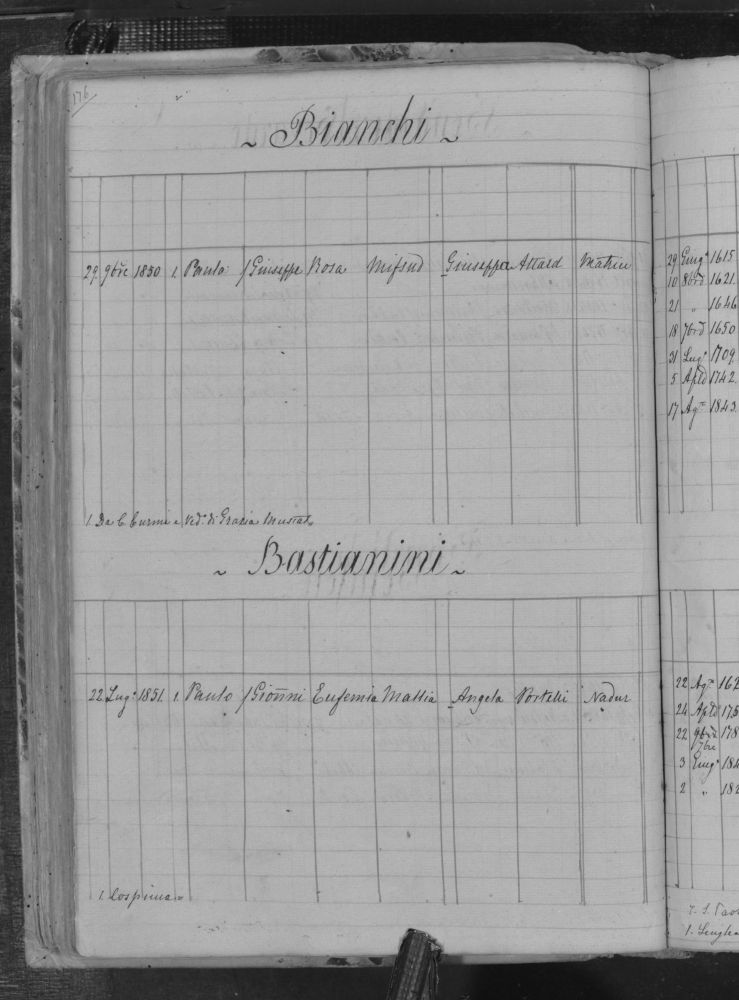 176
~ Bianchi ~
29 9bre 1850 1. Paulo /Giuseppe Rosa Mifsud Giuseppa Attard
1. Da C. Curmi e Ved.ª di Grazia Muscat
~ Bastianini ~
22 Lug.º 1851 1. Paulo /Gionni Eufemia Mattia Angela Portelli Nadur
1. Cospicua
29 Giug.º 1615
10 8bre 1621
21 " 1646
18 7bre 1650
31 Lug.º 1709
5 Aple 1742
17 Ag.to 1843
22 Ag.to 162
24 Aple 175
22 9bre 178
7bre
3 Giug.º 184
2 " 182